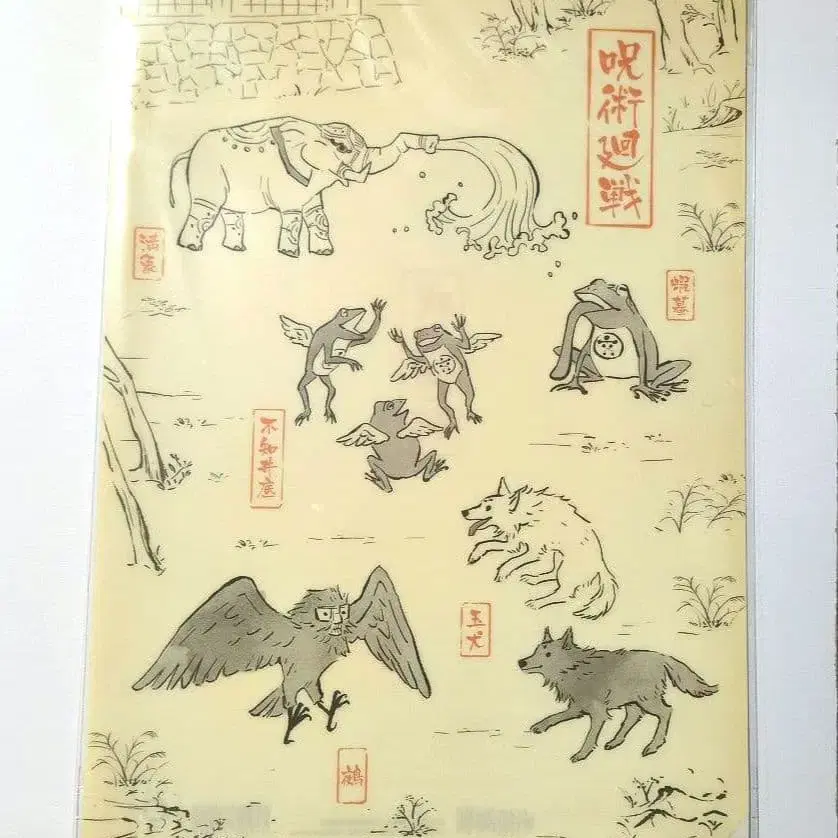 呪術廻戦
満象
蝦蟇
不知井底
玉犬
鵺